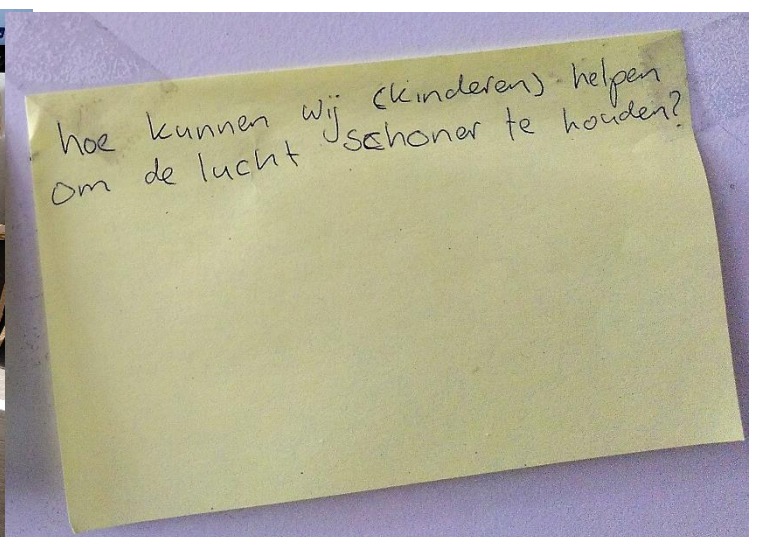 hoe kunnen wij (kinderen) helpen
om de lucht schoner te houden?